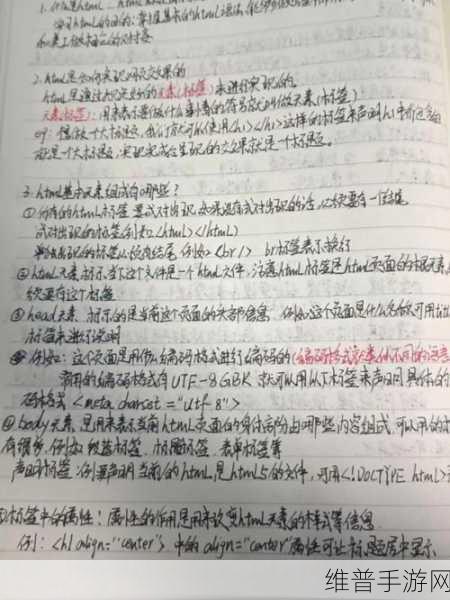 1. 什么是html
学习html的目的：掌握基本的html语法，能够
2. html是如何实现网页效果的
html是通过预先定义好的元素(标签)来进行实现的
元素(标签)：用来表示要做什么事情的符号就叫做元素(标签)
eg：想做一个大标题，我们就可以使用<h1></h1>这样的标签来声明h1中所包含的
就是一个大标题，
3. html基本元素组成有哪些？
①所有的html标签 要成对出现 如果没有成对出现的话，必须要有一个结尾
成对出现的标签例如<html></html>
单独出现的标签必须有结尾 例如<br/> br标签表示换行
②html元素 标示着这个文件是一个html文件，注意html标签是html页面的根元素
必须要有这个标签
③head元素，标示的是当前这个页面的头部信息，例如这个页面是什么
标签来进行说明
例如：这个页面是用什么编码格式进行编码的(编码格式
常用的编码格式有UTF-8 GBK 就可以用以下标签来声明具体的
码格式 <meta charset="utf-8">
④body元素，是用来表示当前html页面的身体部分由哪些内容组成，可以用的标
有很多，例如 段落标签、标题标签、表单标签等
声明标签：例要声明当前的html是html5的文件，可用<!DOCTYPE html>
标签中的属性：属性的作用是用来改变html元素的样式等信息
例：<h1 align="center"> 中的align="center"属性可让标题居中显示
维普手游网